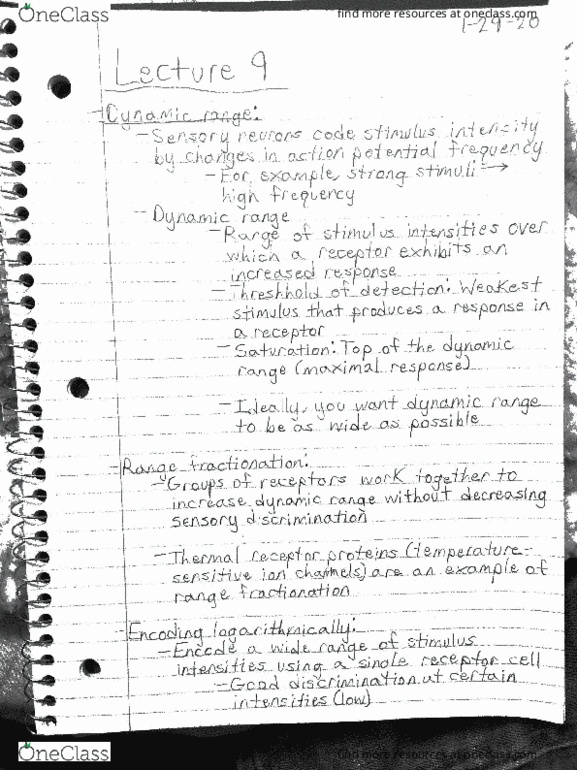 OneClass
find more resources at oneclass.com
1-29-20
Lecture 9
- Dynamic range:
- Sensory neurons code stimulus intencity
by changes in action potential frequency
- For example, strong stimuli →
high frequency
- Dynamic range
- Range of stimulus intensities over
which a receptor exhibits an
increased response
- Threshhold of detection: Weakest
stimulus that produces a response in
a receptor
- Saturation: Top of the dynamic
range (maximal response)
- Ideally, you want dynamic range
to be as wide as possible
- Range fractionation:
- Groups of receptors work together to
increase dynamic range without decreasing
sensory discrimination
- Thermal receptor proteins (temperature-
sensitive ion channels) are an example of
range fractionation
- Encoding logarithmically:
- Encode a wide range of stimulus
intensities using a single receptor cell
- Good discrimination at certain
intensities (low)
OneClass
find more resources at oneclass.com